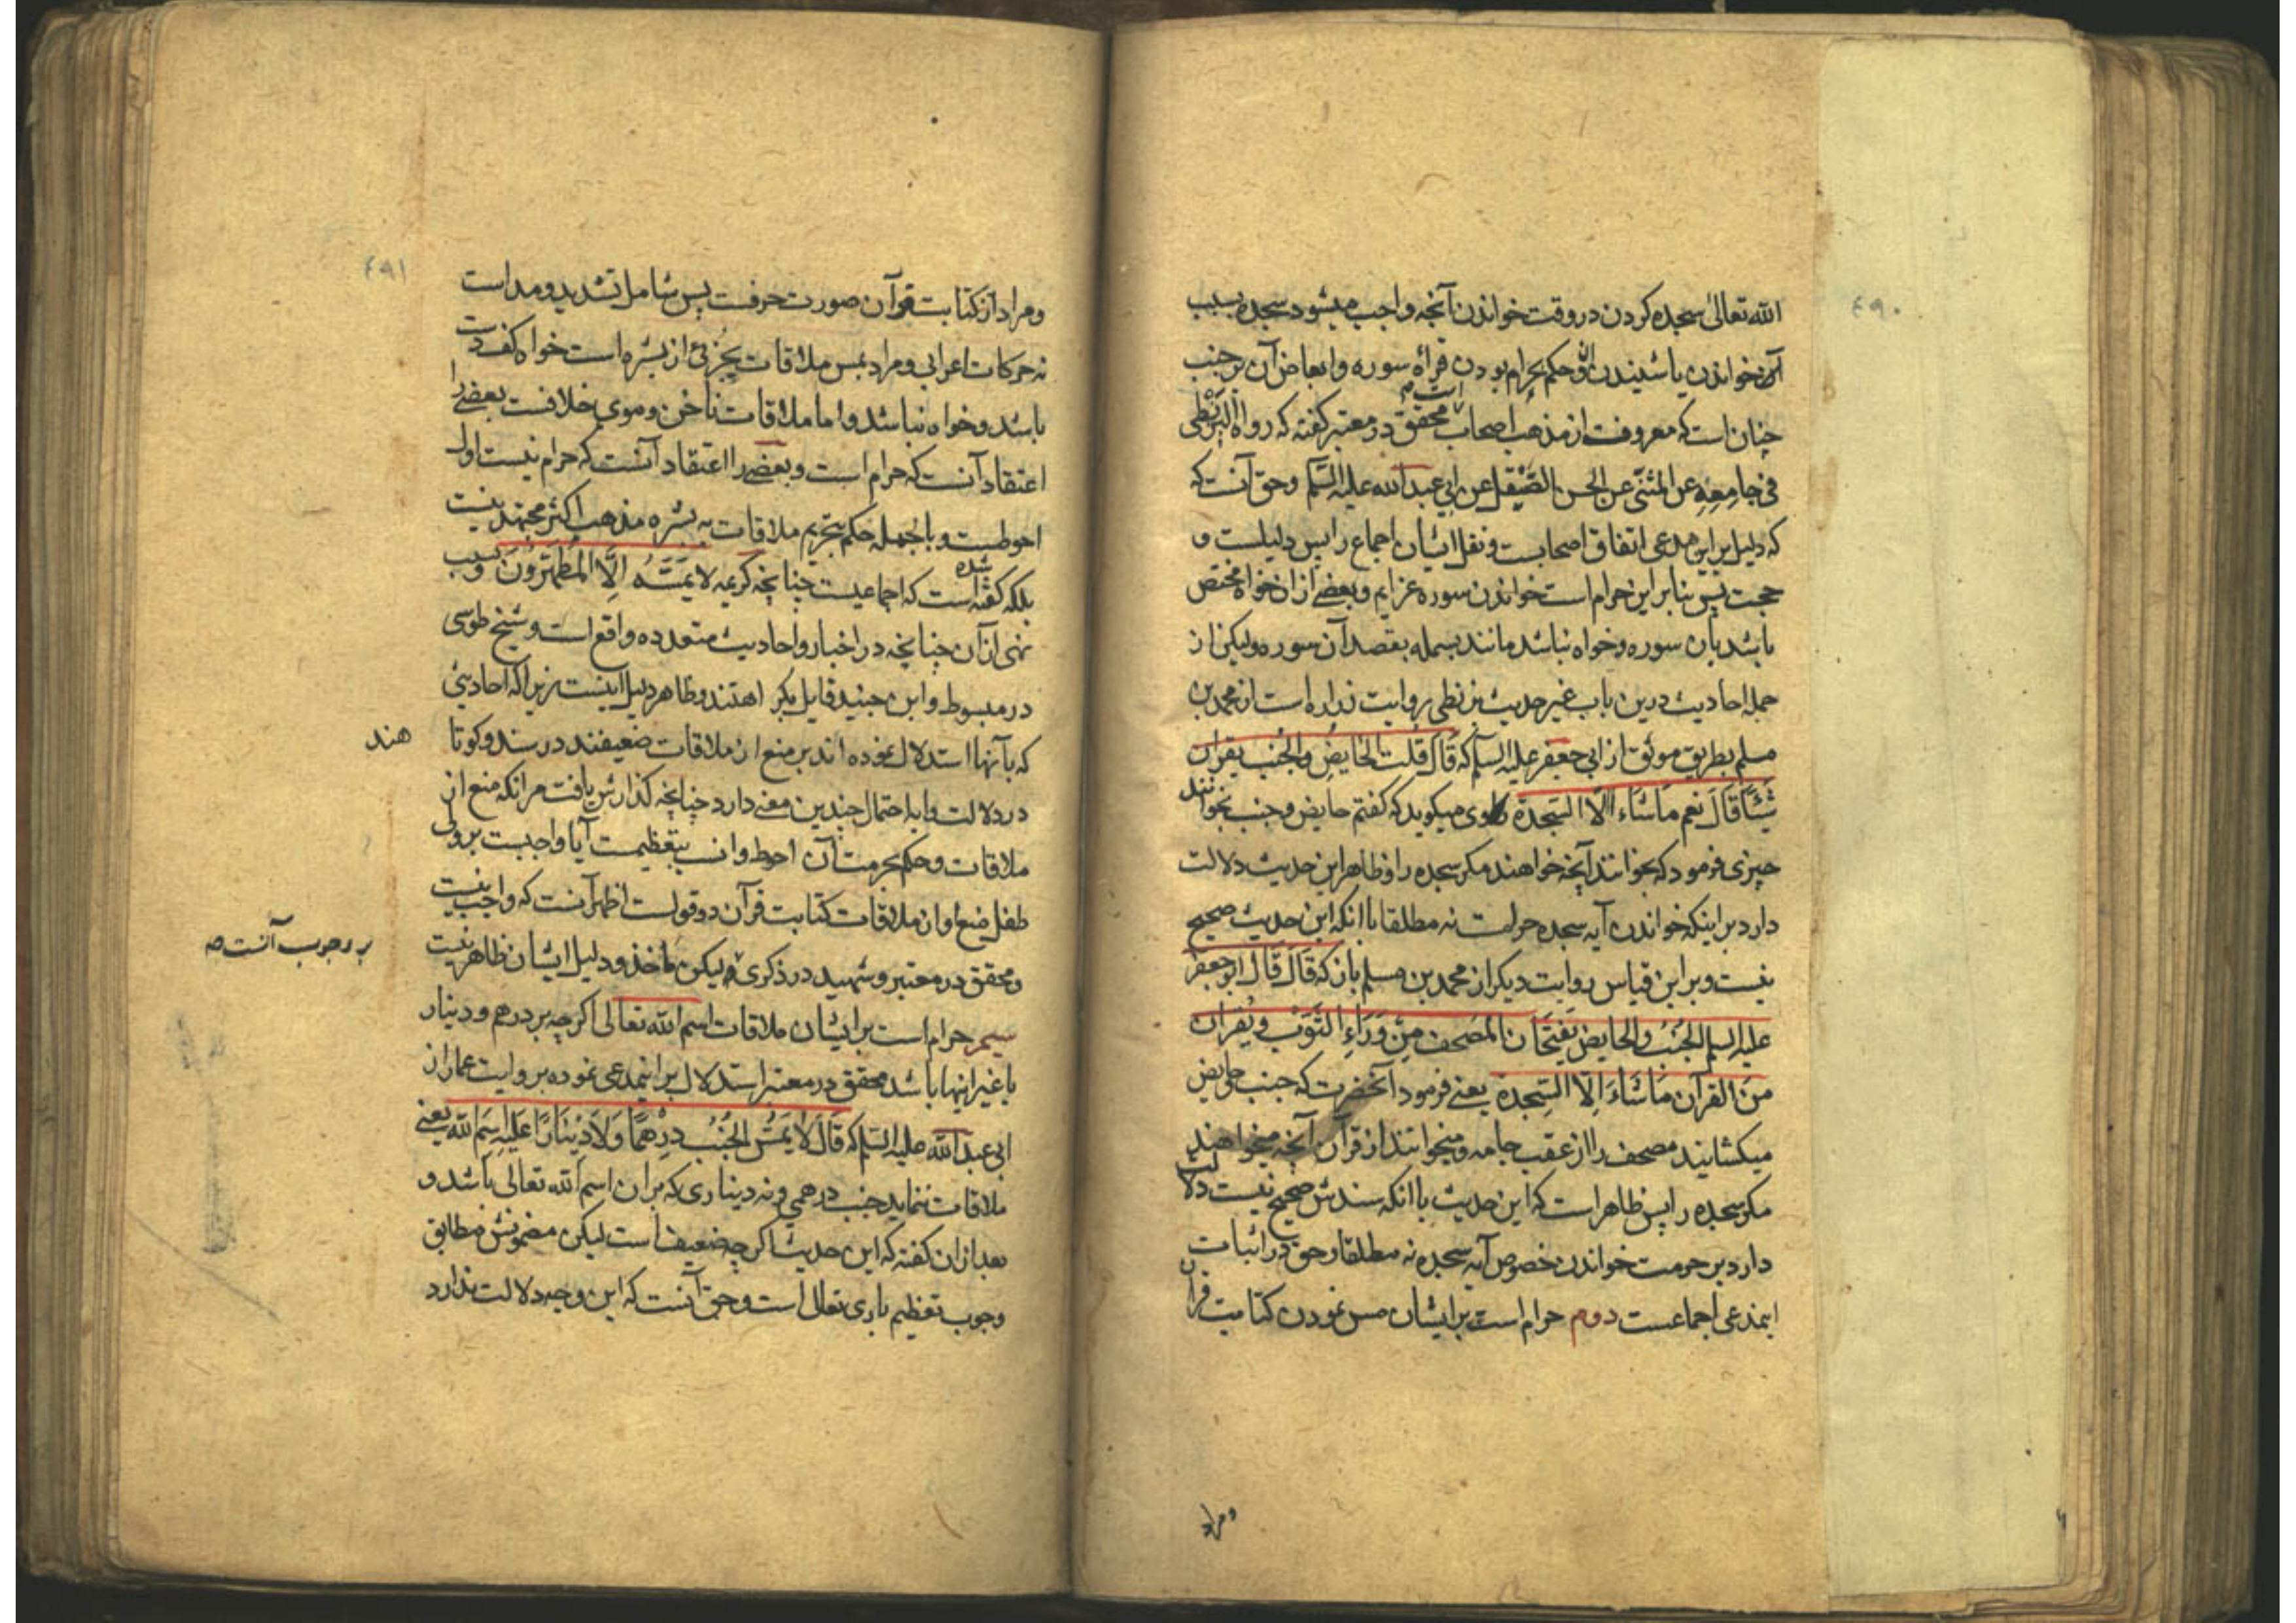 ٤٩٠
الله تعالی سجده کردن در وقت خواندن آنچه واجب میشود سجده بسبب
آن خواندن یا شنیدن آن و حکم بحرام بودن قرأة سوره و ابعاض آن بر جنب
چنان است که معروفست از مذهب اصحاب محقق در معتبر کفته که رواه البزنطی
فی جامعه عن المثنّی عن الحسن الصّیقل عن ابی عبد الله علیه السّلم و حق آنست که
که دلیل بر این مدعی اتفاق اصحابست و نقل ایشان اجماع را پس دلیلست و
حجت پس بنابراین حرام است خواندن سوره عزایم و بعضی از ان خواه مختص
باشد بان سوره و خواه نباشد مانند بسمله بقصد آن سوره ولیکن از
جمله احادیث درین باب غیر حدیث بزنطی روایت زراره است از محمد بن
مسلم بطریق موثوق از ابی جعفر علیه السلم که قال قلت الحایض و الجنب یقران
شیئا قال نعم ماشاء الا السّجدة راوی میکوید که کفتم حایض و جنب بخوانند
چیزی فرمود که بخوانند آنچه خواهند مکر سجده را و ظاهر این حدیث دلالت
دارد بر اینکه خواندن آیه سجده حرامست نه مطلقا با انکه این حدیث صحیح
نیست و بر این قیاس روایت دیکر از محمد بن مسلم بان که قال قال ابو جعفر
علیه السلم الجنب و الحایض یفتحان المصحف من وراء الثوب و یقران
من القرآن ماشاء الّا السّجدة یعنی فرمود آنحضرت که جنب و حایض
میکشایند مصحف را از عقب جامه و میخوانند از قرآن آنچه میخواهند
مکر سجده را پس ظاهر است که این حدیث با انکه سندش صحیح نیست دلالت
دارد بر حرمت خواندن خصوص آیه سجده نه مطلقا و حق در اثبات
اینمدعی اجماعست دوم حرام است بر ایشان مس نمودن کتابت قرآن
و مراد
٤٩١
و مراد از کتابت قرآن صورت حرفست پس شامل تشدید و مد است
نه حرکات اعرابی و مراد بمس ملاقات بجزئی از بشره است خواه کف دست
باشد و خواه نباشد و اما ملاقات ناخن و موی خلافست بعضی را
اعتقاد آنست که حرام است و بعضی را اعتقاد آنست که حرام نیست اول
احوطست و بالجمله حکم بتحریم ملاقات به بشره مذهب اکثر مجتهدینست
بلکه کفته شده است که اجماعیست چنانچه کریمه لایمسّه الّا المطهّرون و سبب
نهی از آن چنانچه در اخبار و احادیث متعدده واقع است و شیخ طوسی
در مبسوط و ابن جنید قایل بکراهتند و ظاهر دلیل اینست زیرا که احادیثی
که بآنها استدلال نموده اند بر منع از ملاقات ضعیفند در سند و کوتا هند
در دلالت و ایه احتمال چندین معنی دارد چنانچه کذارش یافت مر انکه منع از
ملاقات و حکم بحرمت آن احوط و انسب بتعظیمست آیا واجبست بر ولی
طفل منع او از ملاقات کتابت قرآن دو قولست اظهر آنست که واجب نیست
و محقق در معتبر و شهید در ذکری ولیکن ماخذ و دلیل ایشان ظاهر نیست
بر وجوب آنست صه
سیم حرام است بر ایشان ملاقات اسم الله تعالی اکرچه بر درهم و دینار
یا غیر اینها باشد محقق در معتبر استدلال بر اینمدعی نموده بروایت عمار از
ابی عبد الله علیه السّلم که قال لا یمسّ الجنب درهمًا و لا دینارًا علیه اسم الله یعنی
ملاقات ننماید جنب درهمی و نه دیناری که بر ان اسم الله تعالی باشد و
بعد از ان کفته که این حدیث اکرچه ضعیف است لیکن مضمونش مطابق
وجوب تعظیم باری تعالی است و حق آنست که این وجه دلالت ندارد